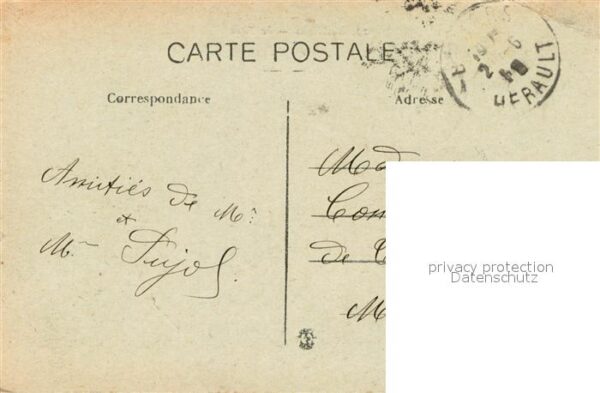 CARTE POSTALE
Correspondance
Adresse
HERAULT
Amitiés de Mr
et
Mme Pujol
de
privacy protection
Datenschutz